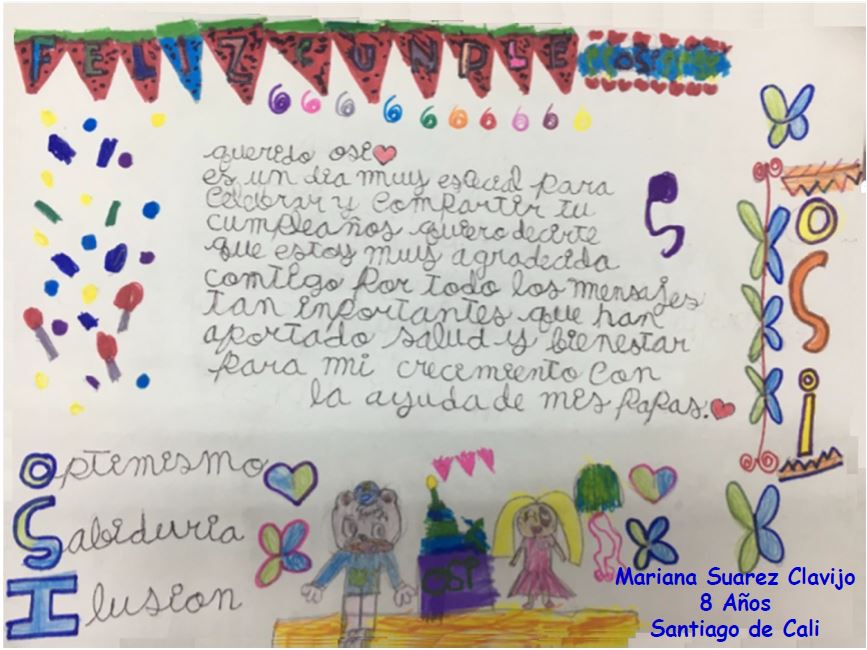 FELIZ CUNPLE
querido osi
es un dia muy esecial para
celebrar y compartir tu
cumpleaños quiero decirte
que estoy muy agradecida
comtigo por todo los mensajes
tan inportantes que han
aportado salud y bienestar
para mi crecimiento con
la ayuda de mis papas.
OSi
Optimismo
Sabiduria
Ilusion
OSI
Mariana Suarez Clavijo
8 Años
Santiago de Cali